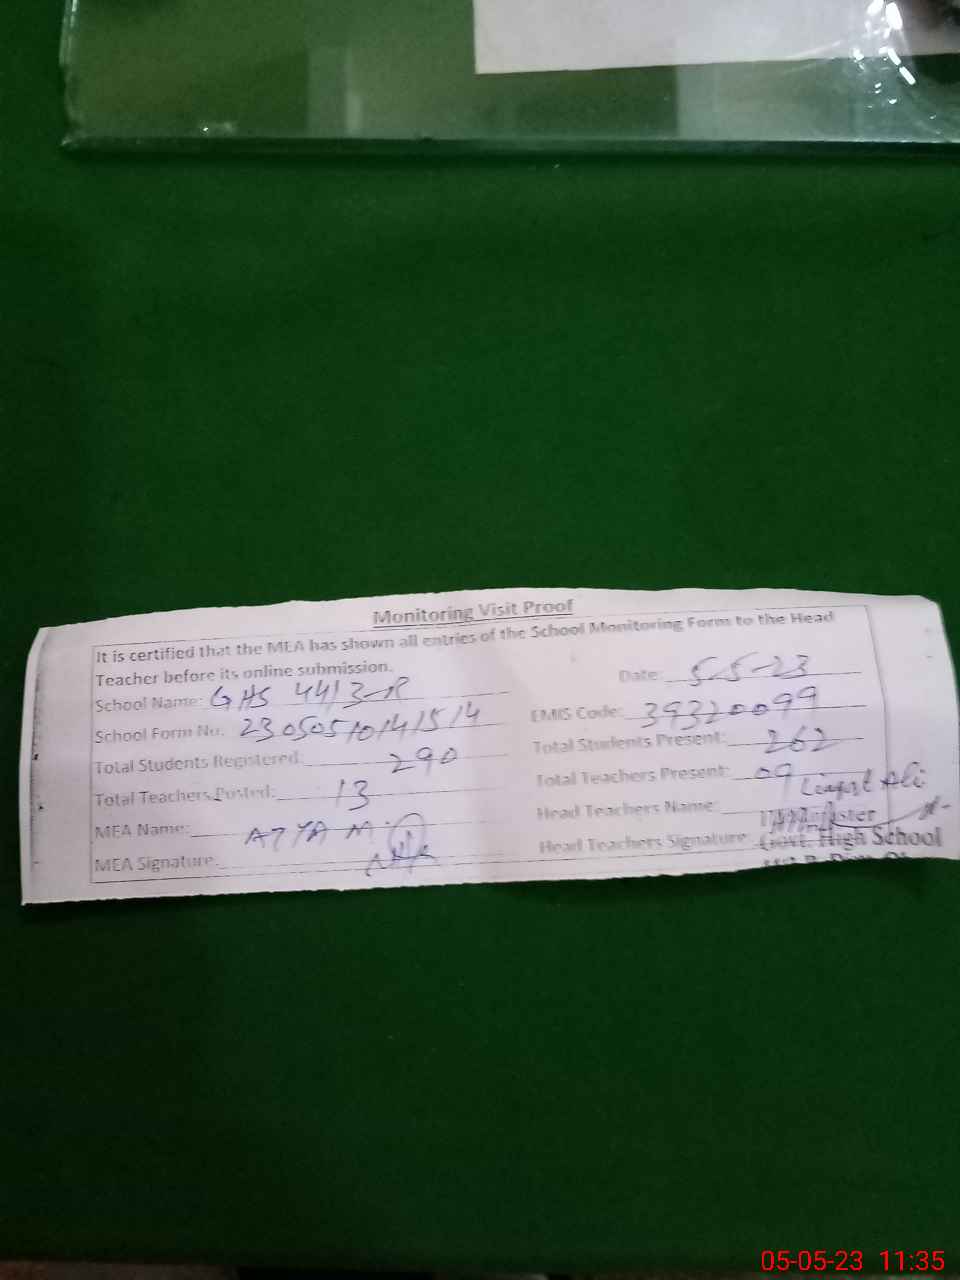 Monitoring Visit Proof
It is certified that the MEA has shown all entries of the School Monitoring Form to the Head
Teacher before its online submission.
Date: 5-5-23
School Name: GHS 44/3-R
EMIS Code: 39320099
School Form No. 23050510141514
Total Students Present: 262
Total Students Registered: 290
Total Teachers Present: 09
Total Teachers Posted: 13
Head Teachers Name: Liaqat Ali
MEA Name:
Head Teachers Signature:
Govt. High School
MEA Signature.
05-05-23 11:35